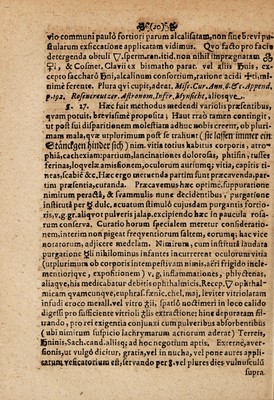 (20)
vio communi paulò fortiori parum alcalisatam, non sine brevi pu-
stularum exsiccatione applicatam vidimus. Quo facto pro facie
detergenda obuli ▽.sperm.ran.itid. non nihil impraegnatam
, & Cosmet. Clavii ex bismatho parat. vel aliis huis, ex-
cepto sacchari hni, alcalinum consortium, ratione acidi ti, mi-
nimè ferente. Plura qvi cupit, adeat, Misc. Cur. Ann. & Append.
p. 192. Rosencreutzer, Astronom. Infer. Mynsicht, aliosque.
§. 27. Haec fuit methodus medendi variolis praesentibus,
quam potuit, brevissimè proposita; Haut raro tamen contingit,
ut post sui disparitionem molestiam adhuc morbi creent, ob pluri-
mam mala, quae utplurimum post se trahunt (sie lassen immer ein
Stänckgen hinder sich) nim. vitia totius habitus corporis, atro-
phia, cachexiam: partium, lancinationes dolorosas, phtisin, tusses
ferinas, loqvelae amissionem, oculorum aurium&; vitia, capitis ti-
neas, scabiē &c. Haec ergo metuenda partim sunt praecavenda, par-
tim praesentia, curanda. Praecavemus haec optimè, suppuratione
nimirum peractâ, & squammulis nunc decidentibus, purgatione
institutâ per dulc. acuatum stimulō cujusdam purgantis fortio-
ris, v. g. gr. aliqvot pulveris jalap. excipiendo haec in paucula rosa-
rum conserva. Curatio horum specialem meretur consideratio-
nem, interim non pigeat freqventiorum saltem, eorumq; hac vice
notatorum, adjicere medelam. Nimirum, cum institutâ laudata
purgatione nihilominus infantes incurrerent oculorum vitia
(utplurimum ob corporis intempestivam nimis, aëri frigido incle-
mentiorique, expositionem) v. g. inflammationes, phlyctenas,
aliasve, his medicabatur debitis ophthalmicis, Recep. ▽ ophthal-
micam qvamcunque, euphras. fœnic. chel. maj. leviter vitriolatam
infusi croco metall. vel vitro spatiō noctimeri in loco calido
digesti pro sufficiente vitrioli extractione; hinc depuratam fil-
trando, pro rei exigentia conjunxi cum pulveribus absorbentibus
(ubi nimirum suspicio lachrymarum acriorum aderat) Terreis,
sinis. Sach. cand. aliisq; ad hoc negotium aptis. Externè, aver-
sionis, ut vulgò dicitur, gratis, vel in nucha, vel pone aures appli-
catum, vesicatorium est, servando per vel plures dies vulnusculū
supra